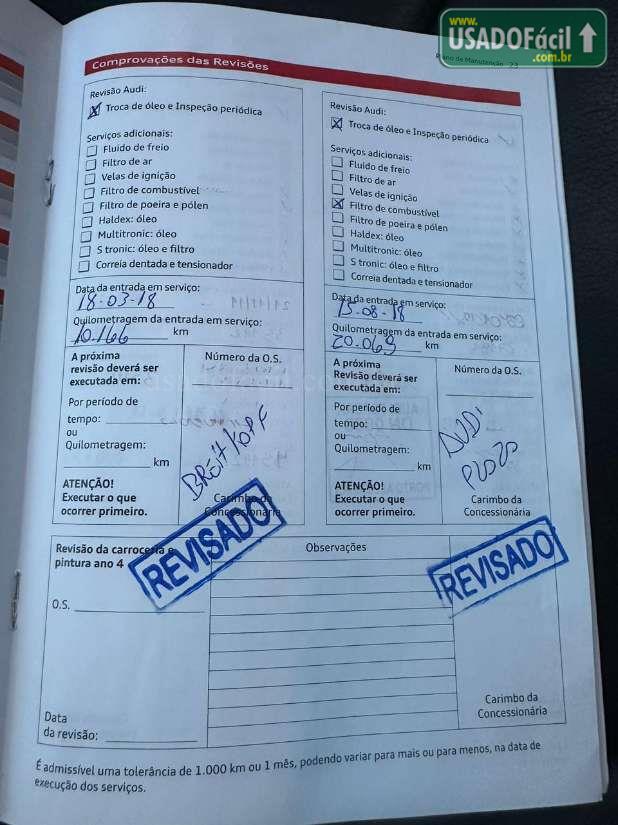 www.
USADOFácil
.com.br
Comprovações das Revisões
Plano de Manutenção 23
Revisão Audi:
Troca de óleo e Inspeção periódica
Serviços adicionais:
Fluido de freio
Filtro de ar
Velas de ignição
Filtro de combustível
Filtro de poeira e pólen
Haldex: óleo
Multitronic: óleo
S tronic: óleo e filtro
Correia dentada e tensionador
Data da entrada em serviço:
18-03-18
Quilometragem da entrada em serviço:
10.166 km
A próxima
revisão deverá ser
executada em:
Número da O.S.
Por período de
tempo:
ou
Quilometragem:
km
BREITKOPF
ATENÇÃO!
Executar o que
ocorrer primeiro.
Carimbo da
Concessionária
REVISADO
Revisão Audi:
Troca de óleo e Inspeção periódica
Serviços adicionais:
Fluido de freio
Filtro de ar
Velas de ignição
Filtro de combustível
Filtro de poeira e pólen
Haldex: óleo
Multitronic: óleo
S tronic: óleo e filtro
Correia dentada e tensionador
Data da entrada em serviço:
15-08-18
Quilometragem da entrada em serviço:
20.069 km
A próxima
Revisão deverá ser
executada em:
Número da O.S.
Por período de
tempo:
ou
Quilometragem:
km
AUDI
ATENÇÃO!
Executar o que
ocorrer primeiro.
Carimbo da
Concessionária
REVISADO
Revisão da carroceria e
pintura ano 4
O.S.
Data
da revisão:
Observações
Carimbo da
Concessionária
É admissível uma tolerância de 1.000 km ou 1 mês, podendo variar para mais ou para menos, na data de
execução dos serviços.